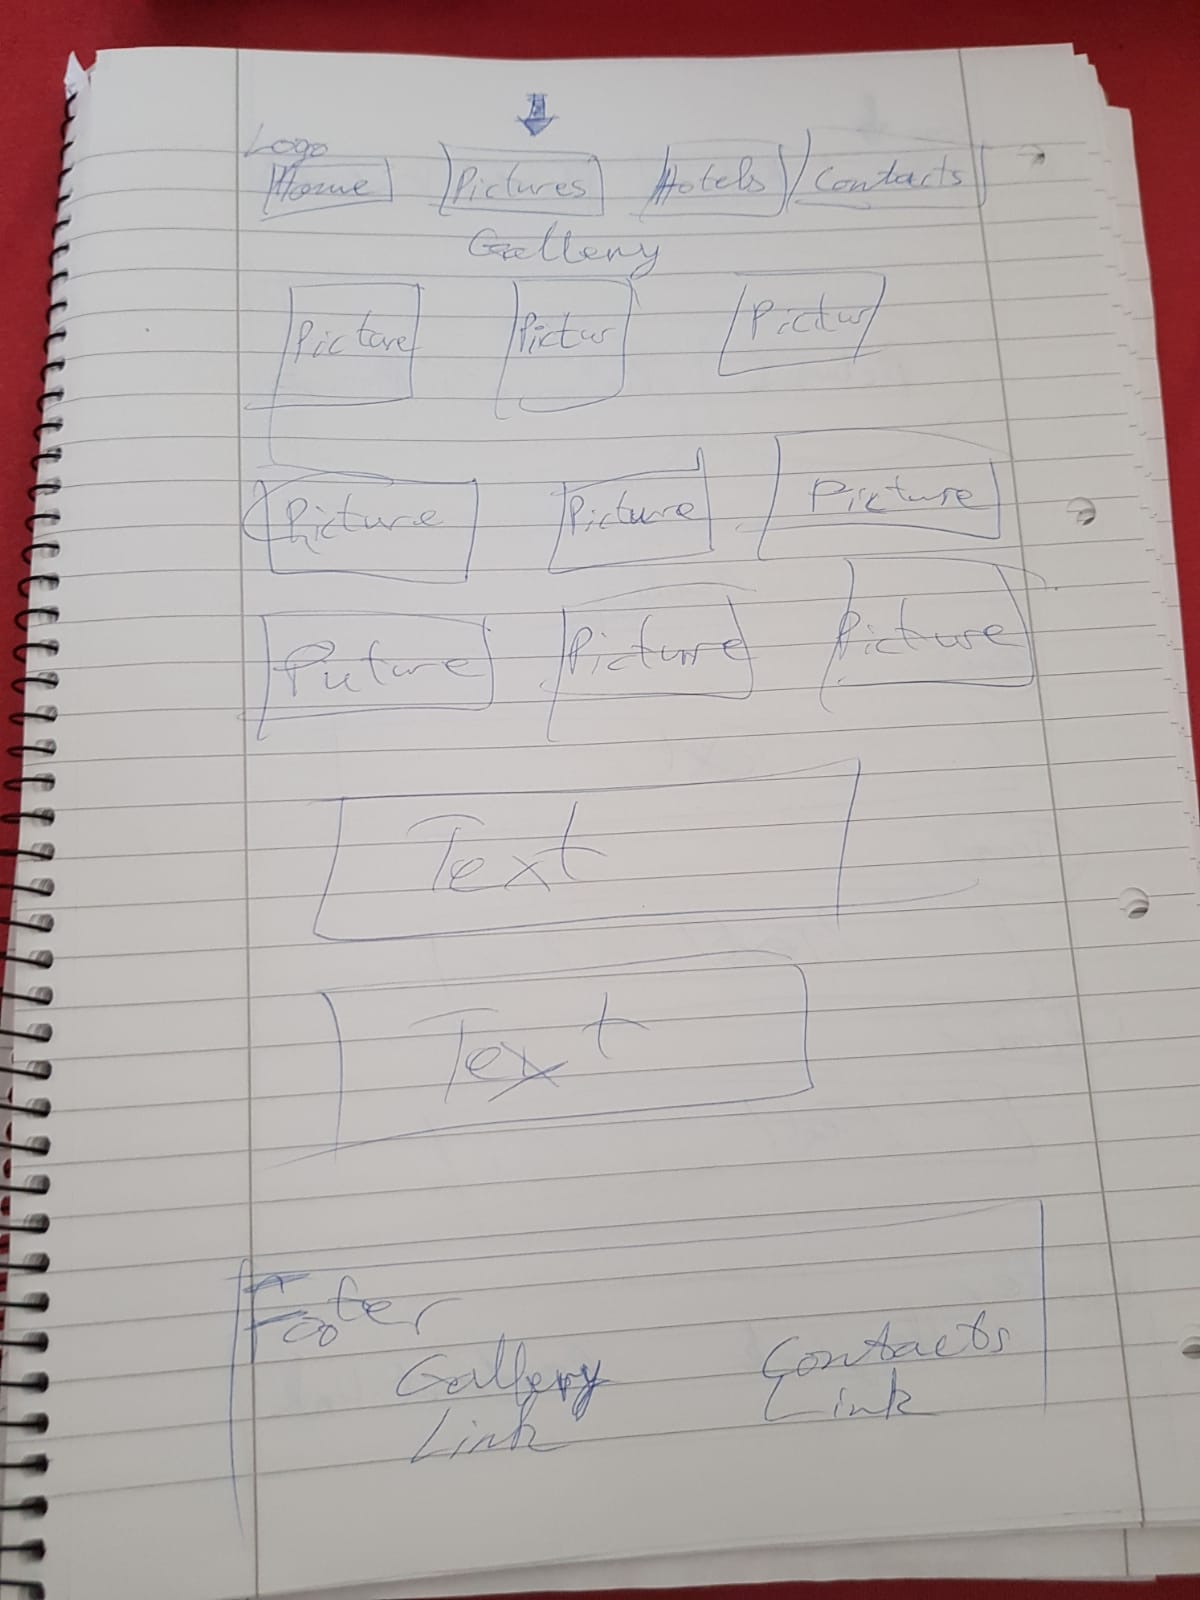 Logo
Home Pictures Hotels Contacts
Gallery
Picture Pictur Pictur
Picture Picture Picture
Picture Picture Picture
Text
Text
Footer
Gallery Contacts
Link Link